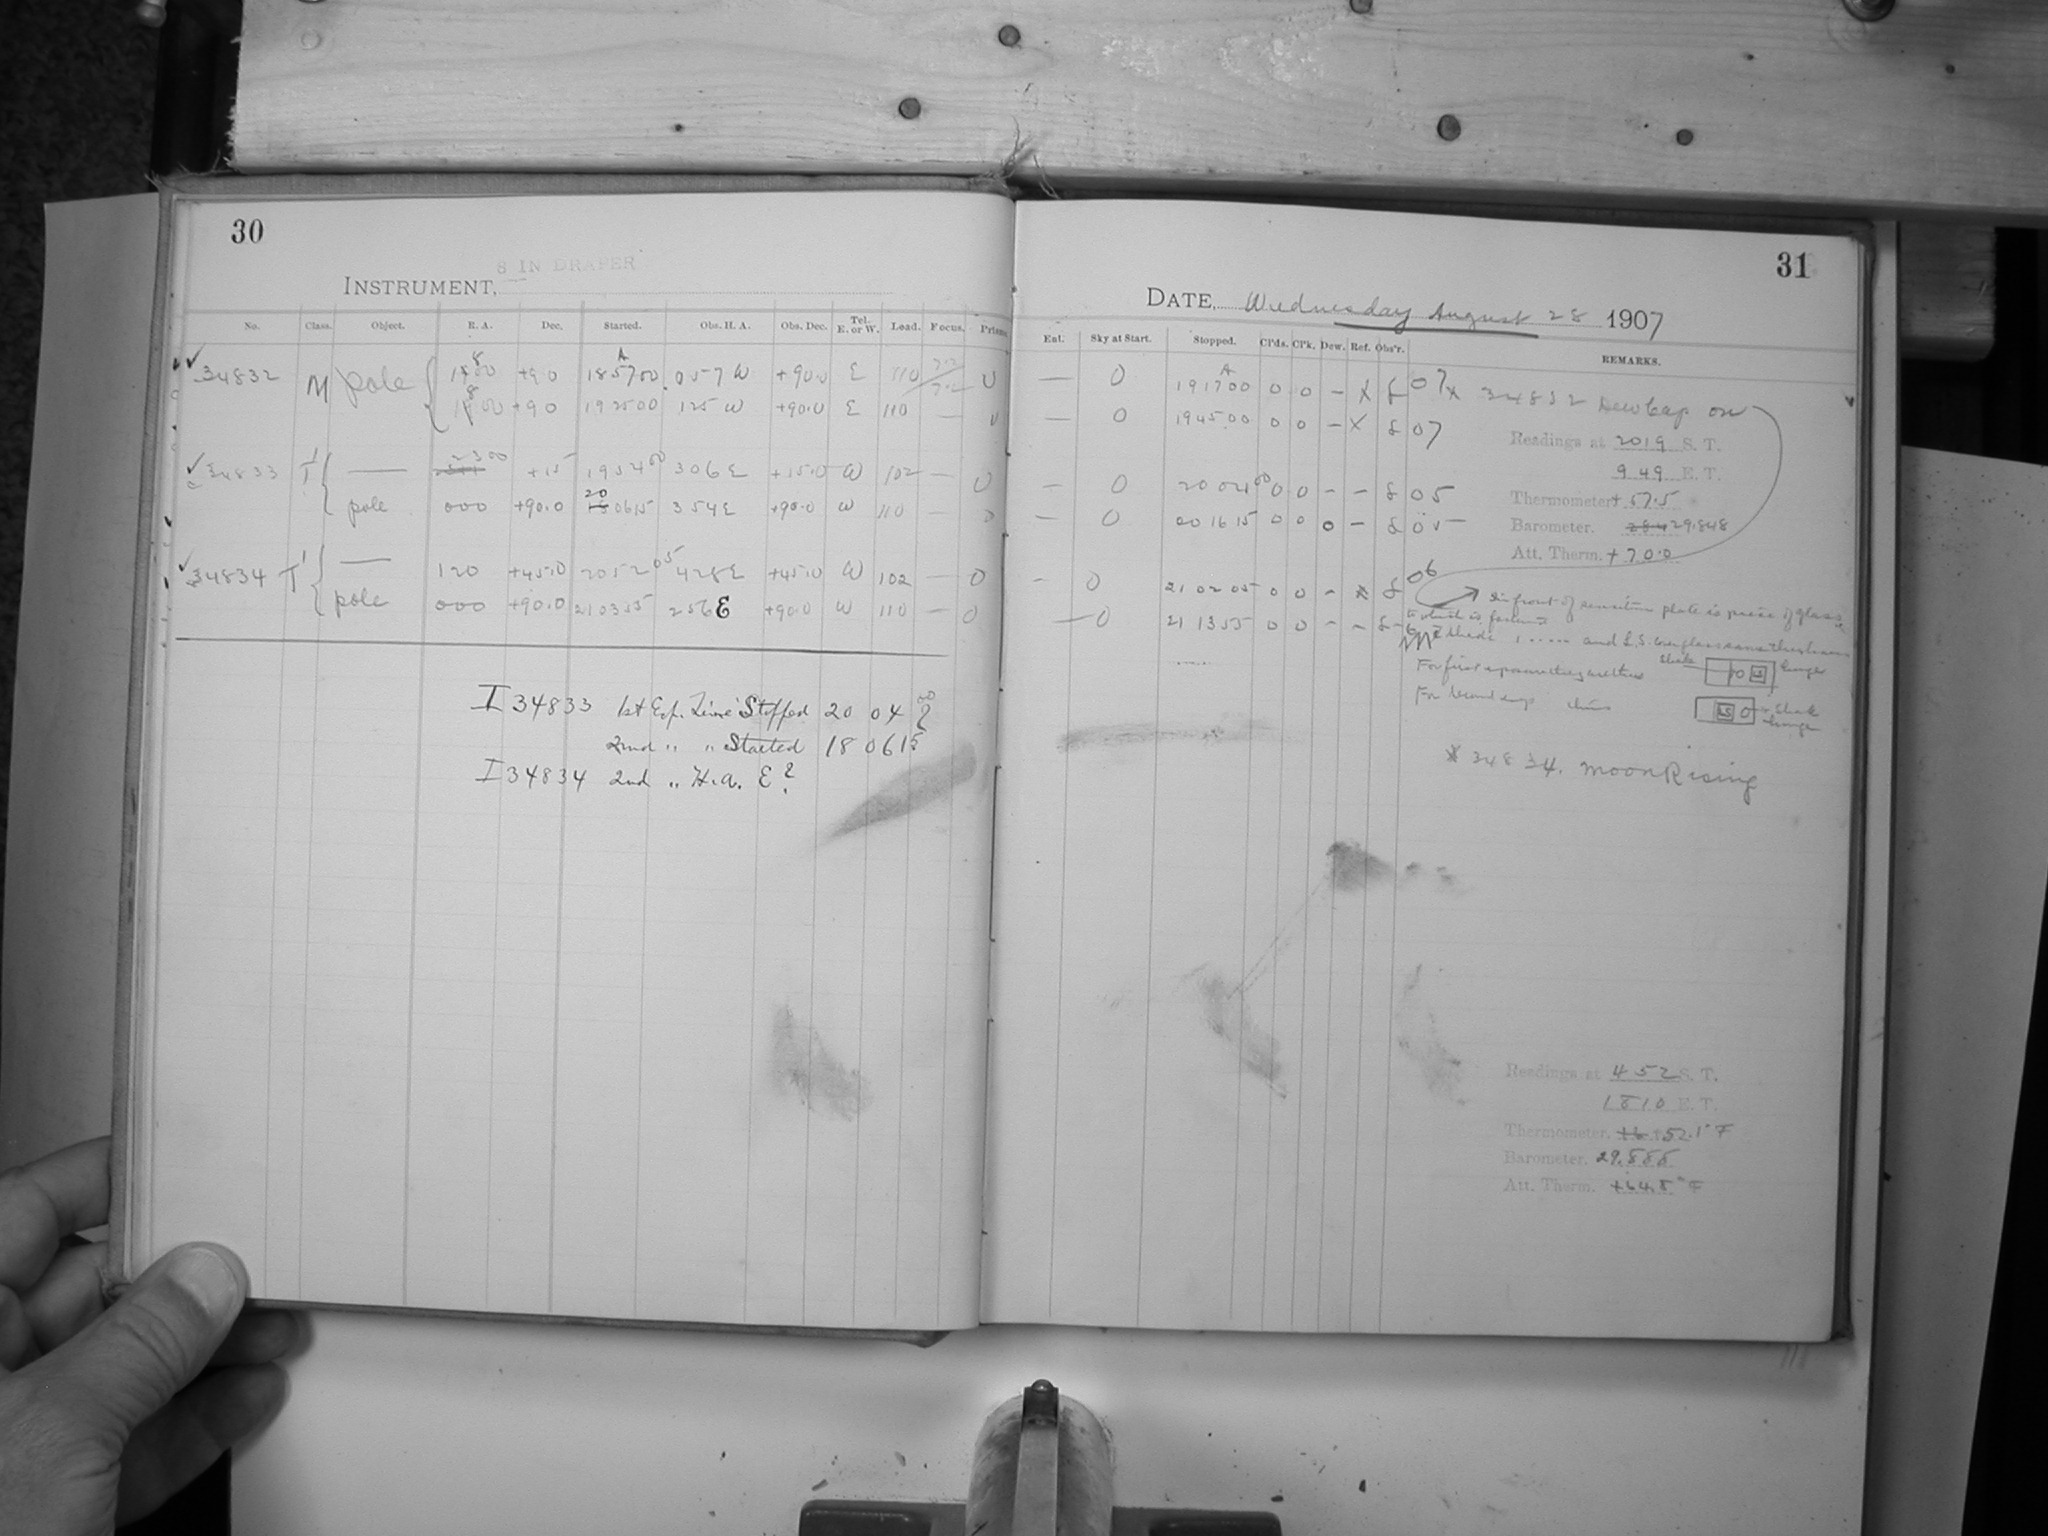 30
8 IN DRAPER
INSTRUMENT,
No. Class. Object. R. A. Dec. Started. Obs. H. A. Obs. Dec. Tel. E. or W. Lead. Focus. Prism
34832 M pole 1800 +90 185700 057 W +90.0 E 110 0
1800 +90 192500 125 W +90.0 E 110 — 0
34833 — 2300 +15 195400 306 E +15.0 W 102 — 0
pole 000 +90.0 200615 354 E +90.0 W 110 — 0
34834 — 120 +45.0 205205 428 E +45.0 W 102 — 0
pole 000 +90.0 210355 256 E +90.0 W 110 — 0
I 34833 1st Exp. Time Stopped 20 04 ?
2nd " " Started 18 06 15
I 34834 2nd " H.A. E?
31
DATE, Wednesday August 28 1907
Ent. Sky at Start. Stopped. Cl'ds. Cl'k. Dew. Ref. Obs'r. REMARKS.
— 0 191700 0 0 – X 07
— 0 194500 0 0 – X 07
– 0 200400 0 0 – – 05
— 0 201615 0 0 0 – 05
– 0 210205 0 0 – 06
— 0 211355 0 0 – –
34832 Dew Cap on
Readings at 2019 S. T.
9 49 E. T.
Thermometer + 57.5
Barometer. 29.848
Att. Therm. + 70.0
In front of sensitive plate is piece of glass
to which is fastened
For first exposure
For second exp.
34834. Moon Rising
Readings at 4 52 S. T.
1810 E. T.
Thermometer. +52.1° F
Barometer. 29.888
Att. Therm. +64.8° F